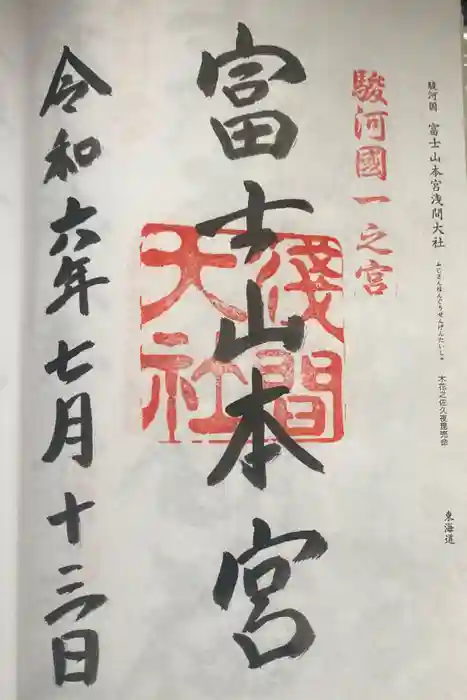 駿河国 富士山本宮浅間大社 ふじさんほんぐうせんげんたいしゃ 木花之佐久夜毘売命 東海道
駿河國一之宮
富士山本宮
淺間大社
令和六年七月十三日